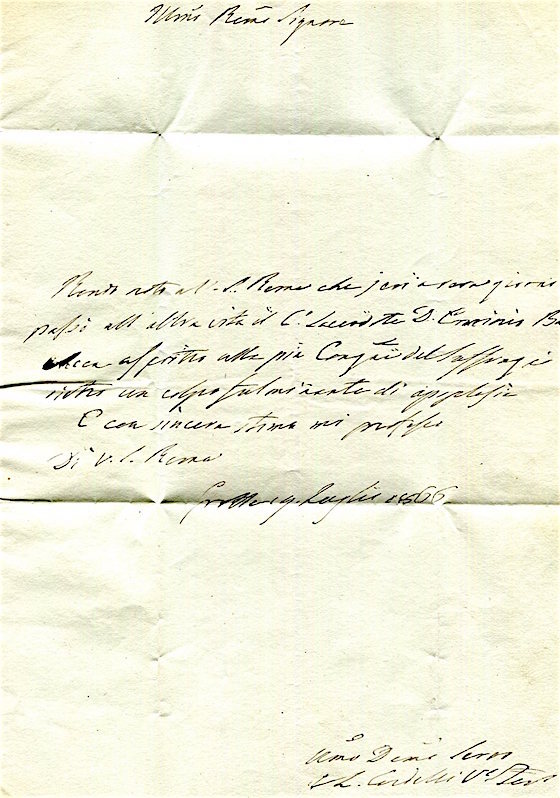 Illmo REmo Signore
Rendo noto a V. S. Rema che jeri a sera giorni
passò all'altra vita il C. Sacerdote D. Erminio
ascritto alla pia Congne del Suffragio
dietro un colpo fulminante di apoplesia
E con sincera stima mi professo
Di V. S. Rema
Grotte 19 Luglio 1866
Umo Demo Servo